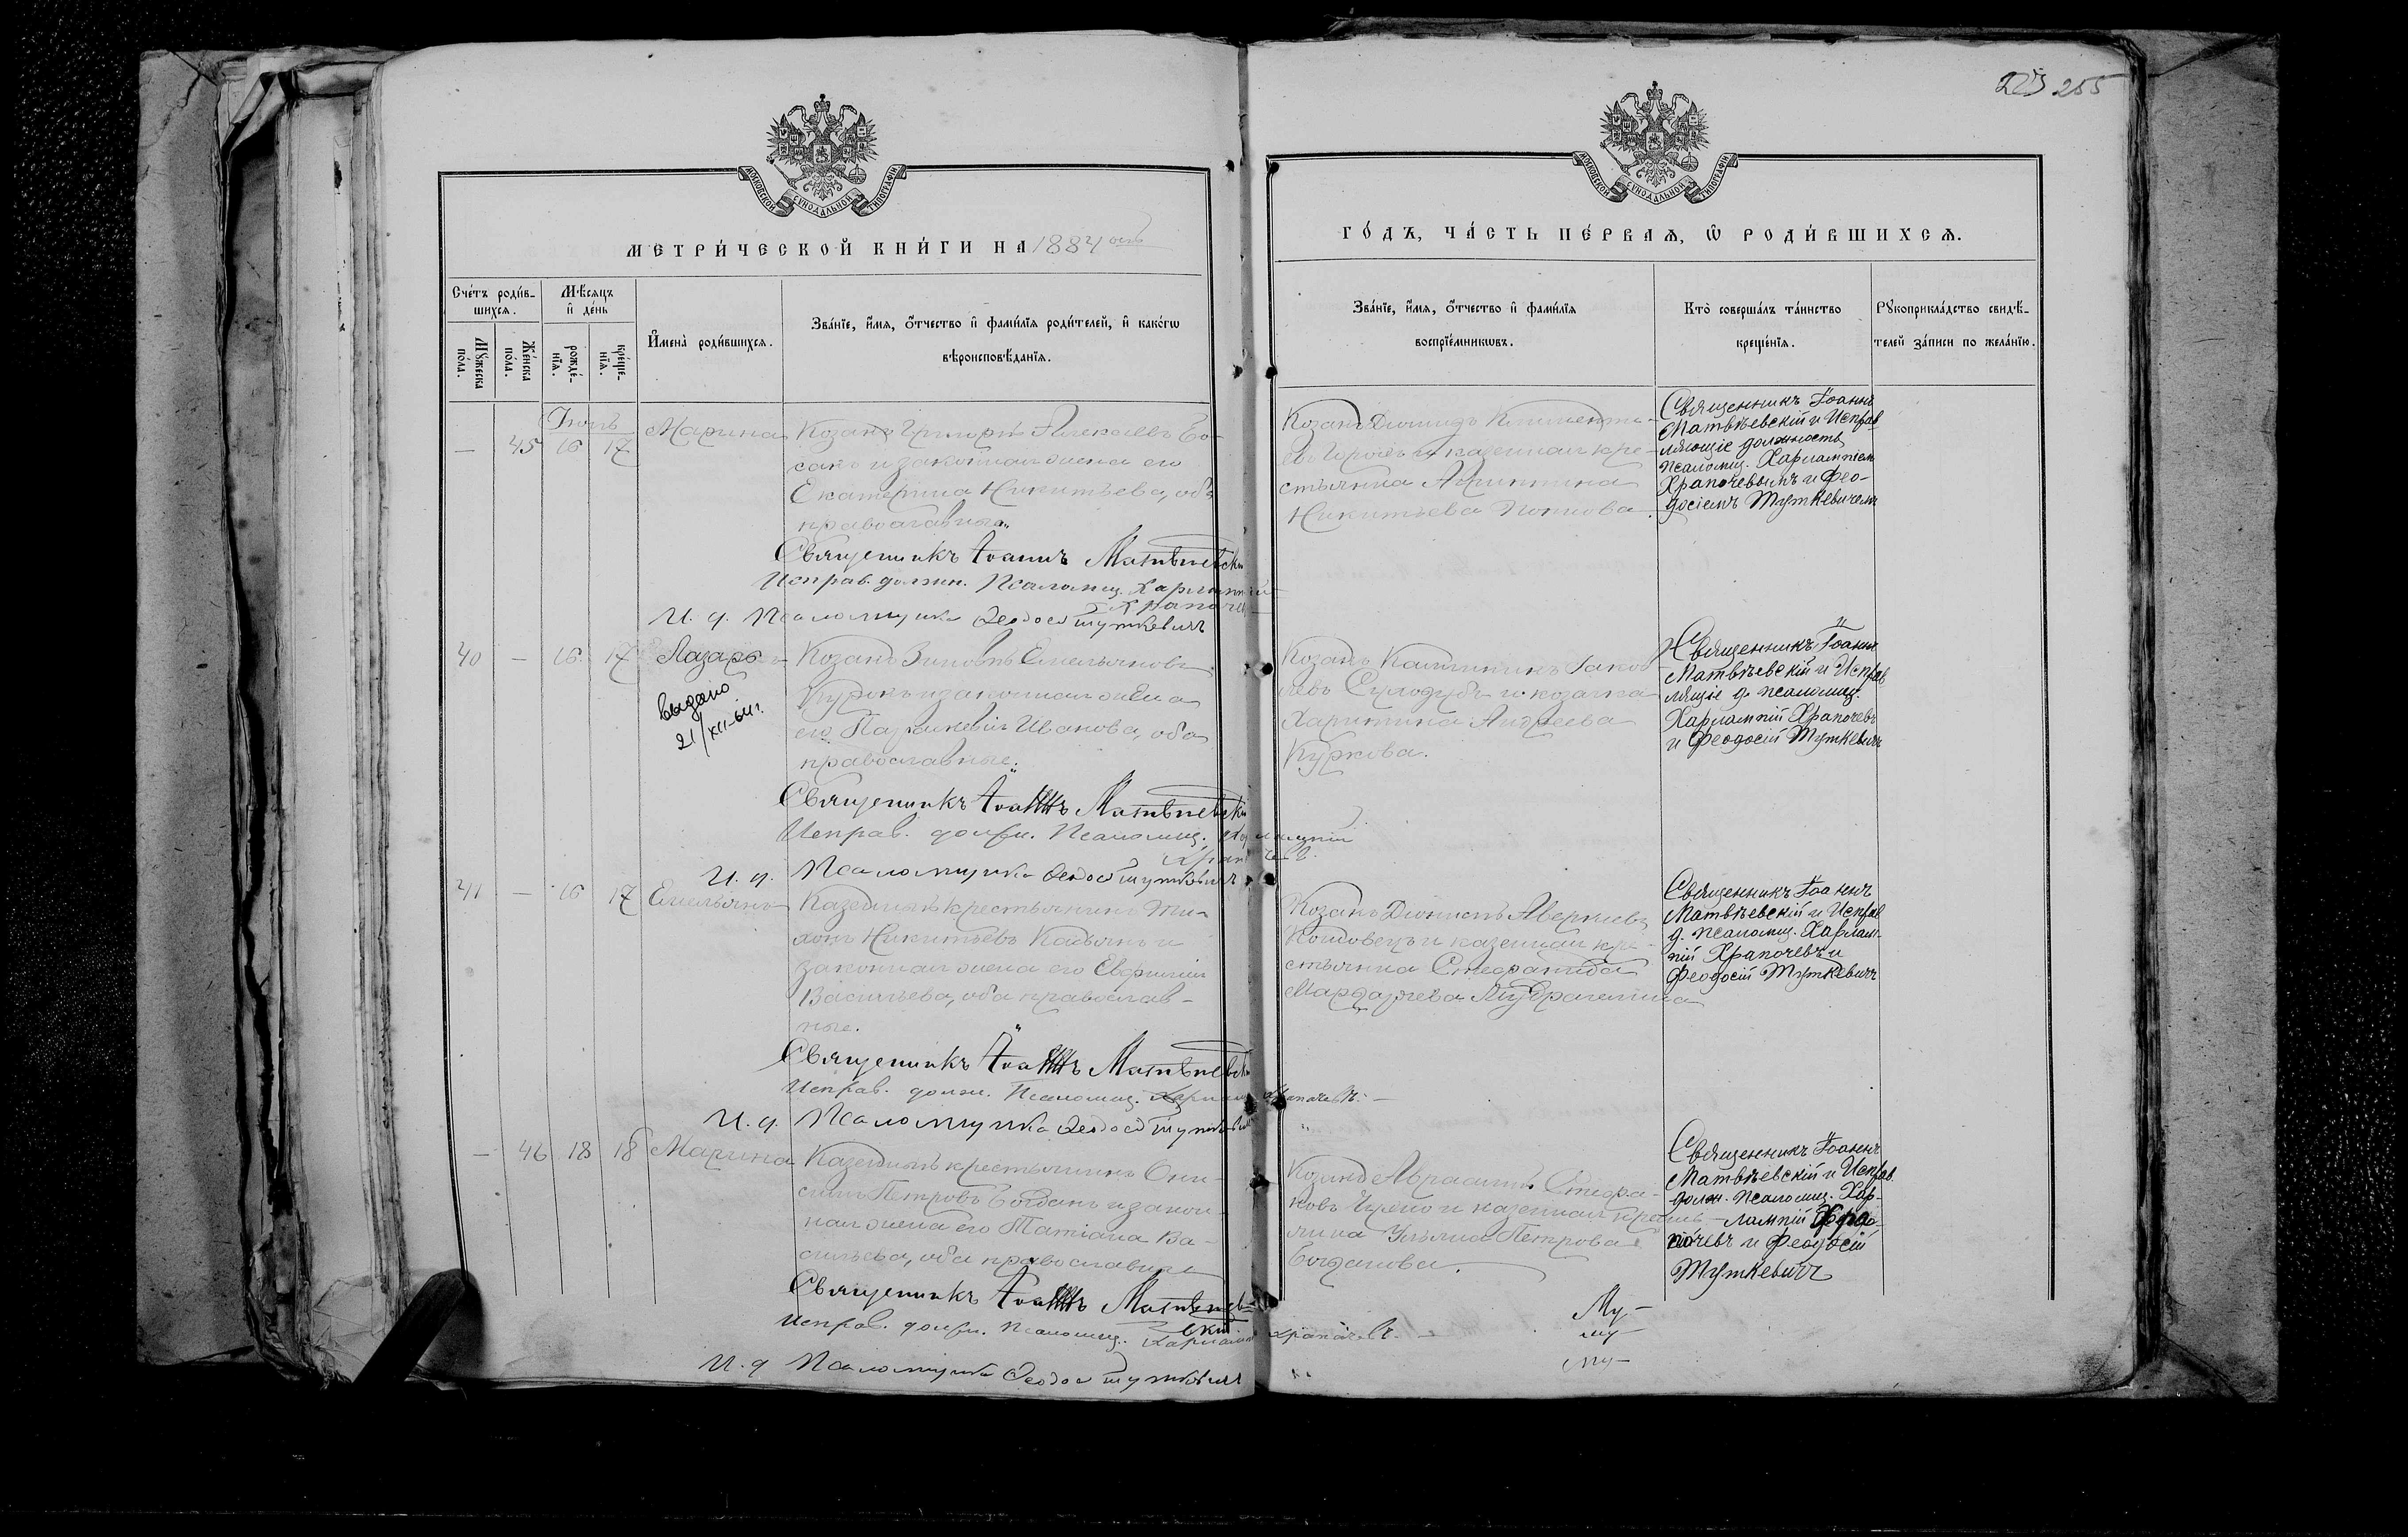 223 255
МОСКОВСКОЙ СУНОДАЛЬНОЙ ТИПОГРАФІИ
МОСКОВСКОЙ СУНОДАЛЬНОЙ ТИПОГРАФІИ
МЕТРИ́ЧЕСКОЙ КНИ́ГИ НА 1884
ГО́ДЪ, ЧА́СТЬ ПЕ́РВАѦ, Ѡ РОДИ́ВШИХСѦ.
Сче́тъ роди́в-
шихсѧ.
Мꙋ́жеска по́ла.
Же́нска по́ла.
Мѣ́сѧцъ
и҆ де́нь
рожде́-
нїѧ.
креще́-
нїѧ.
И҆мена̀ роди́вшихсѧ.
Зва́нїе, и҆́мѧ, ѻ҆́тчество и҆ фами́лїѧ роди́телей, и҆ како́гѡ
вѣроисповѣ́данїѧ.
Зва́нїе, и҆́мѧ, ѻ҆́тчество и҆ фами́лїѧ
воспрїе́мникѡвъ.
Кто̀ соверша́лъ та́инство
креще́нїѧ.
Рꙋкоприкла́дство свидѣ́-
телей за́писи по жела́нїю.
Іюнь
— 45 16 17 Марина
Козакъ Григорій Алексѣевъ Бо-
санъ и законная жена его
Екатерина Никитьева, оба
православные.
Священникъ Іоаннъ Матвѣевскій
Исправ. должн. Псаломщ. Харлампій
Храпачевъ
И. д. Псаломщика Ѳеодосій Шуткевичъ
Козакъ Діомидъ
и казенная кре-
стьянка Агриппина
Никитьева Попкова.
Священникъ Іоаннъ
Матвѣевскій и Исправ
ляющіе должность
псаломщ. Харлампіем
Храпочевымъ и Фео-
досіемъ Тшуткевичемъ
40 — 16 17 Лазарь
выдано
21/XII-64г.
Козакъ Зиновій Емельяновъ
Куркъ и законная жена
его Параскевія Иванова, оба
православные.
Священникъ Іоаннъ Матвѣевскій
Исправ. должн. Псаломщ. Харлампій
Храпачевъ
И. д. Псаломщика Ѳеодосій Шуткевичъ
Козакъ Каллиникъ Іаков
левъ и козачка
Харитина Андреева
Куркова.
Священникъ Іоаннъ
Матвѣевскій и Исправ
ляющіе д. псаломщ.
Харлампій Храпочевъ
и Феодосій Тшуткевичъ
41 — 16 17 Емельянъ
Казенный крестьянинъ Ти-
хонъ Никитьевъ Касьянъ и
законная жена его Евфимія
Васильева, оба православ-
ные.
Священникъ Іоаннъ Матвѣевскій
Исправ. должн. Псаломщ. Харламп. Храпачевъ. —
И. д. Псаломщика Ѳеодосій Шуткевичъ
Козакъ Діонисій Аверкіевъ
и казенная кре-
стьянка Стефанида
Мардарьева
Священникъ Іоаннъ
Матвѣевскій и Исправ
д. псаломщ. Харлам-
пій Храпочевъ и
Феодосій Тшуткевичъ
— 46 18 18 Марина
Казенный крестьянинъ Они-
симъ Петровъ Богданъ и закон-
ная жена его Татіана Ва-
сильева, оба православные
Священникъ Іоаннъ Матвѣев-
скій
Исправ. должн. Псаломщ. Харламп. Храпачевъ. —
И. д. Псаломщика Ѳеодосій Шуткевичъ
Козакъ Герасимъ Стефа-
новъ и казенная кресть-
янка Ульяна Петрова
Богданова.
Священникъ Іоаннъ
Матвѣевскій и Исправ.
должн. псаломщ. Хар-
лампій Храпо-
чевъ и Феодосій
Тшуткевичъ